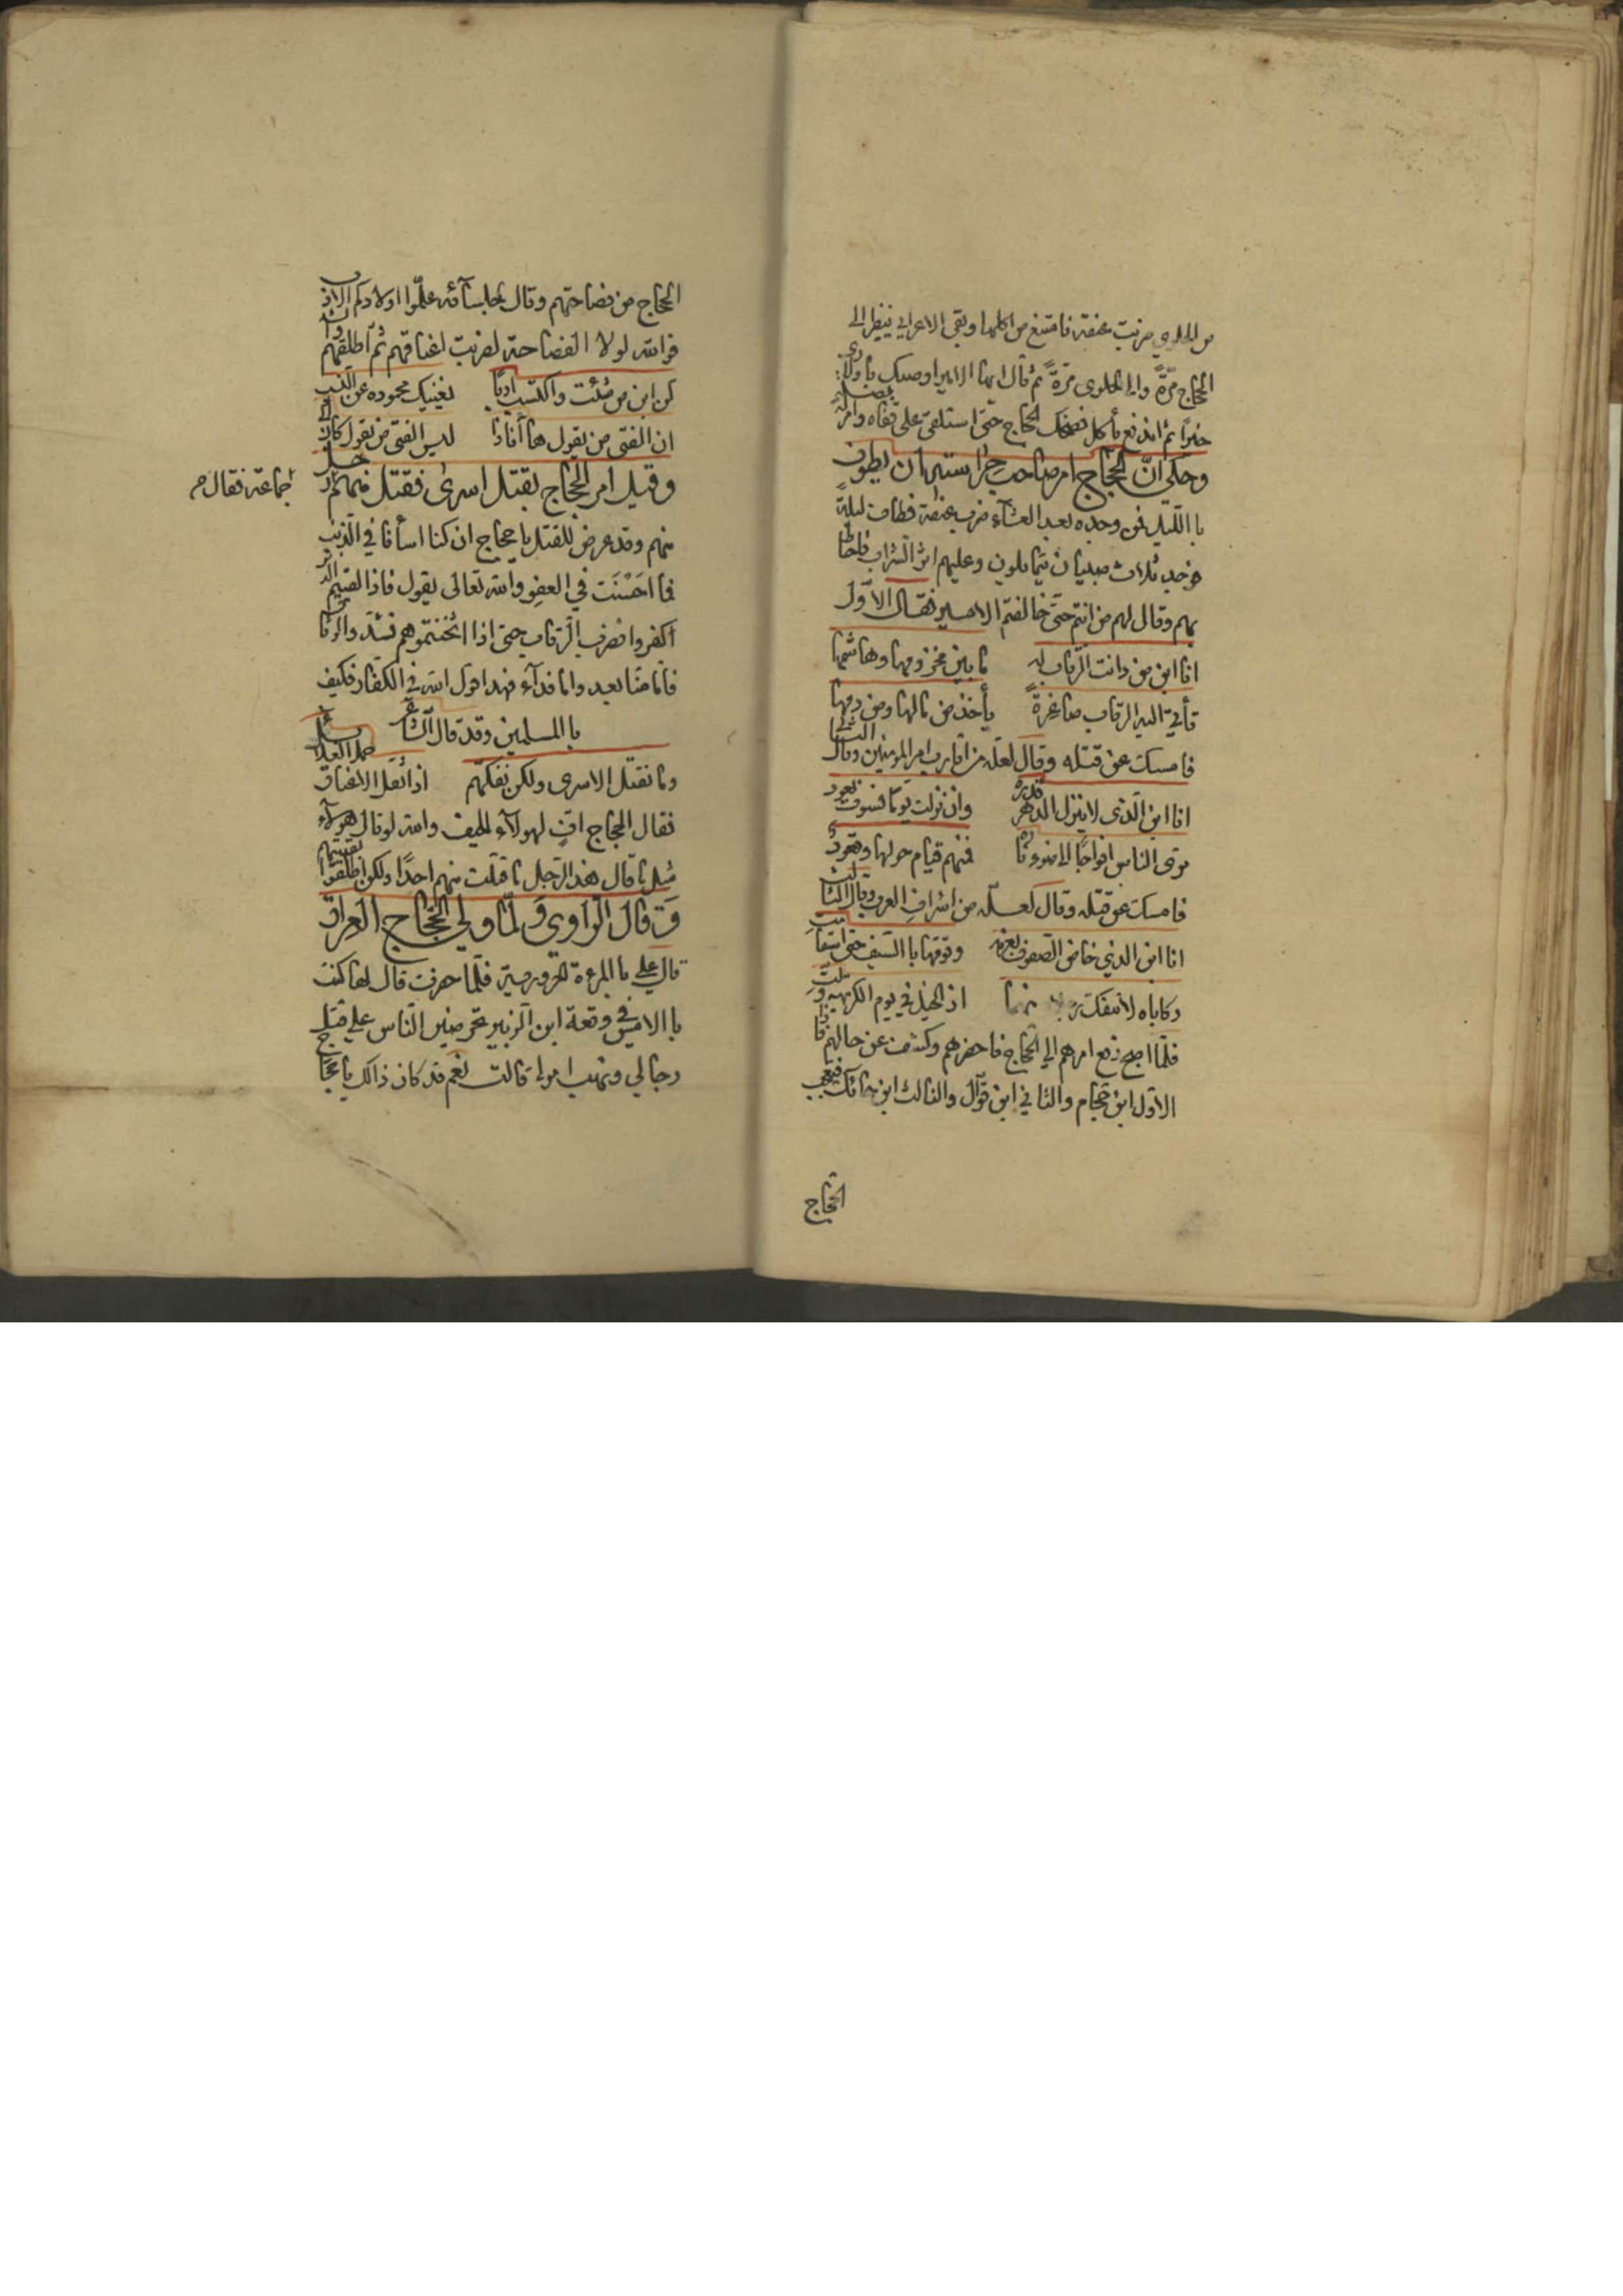 من الحلوى ضربت عنقه فامتنع من اكلها وبقى الاعرابي ينظر الى
الحجاج مرّةً والى الحلوى مرّةً ثم قال ايها الامير اوصيك باولادى
خيرًا ثم اندفع يأكل فضحك الحجاج حتى استلقى على قفاه وامر له بصلة
وحكى انّ الحجاج امر صاحب حراسته ان يطوف
با الليل فمن وجده بعد العشآء ضرب عنقه فطاف ليلةً
فوجد ثلاث صبيان يتمايلون وعليهم اثر الشراب فاحاط
بهم وقال لهم من انتم حتى خالفتم الامير فقال الاول
انا ابن من دانت الرقاب له ما بين مخزومها وهاشمها
تأتي اليه الرقاب صاغرةً يأخذ من مالها ومن دمها
فامسك عن قتله وقال لعله من اقارب امير المؤمنين وقال الثاني
انا ابن الذي لا ينزل الدهر قدره وان نزلت يومًا فسوف تعود
ترى الناس افواجًا الى ضوء ناره فمنهم قيام حولها وقعود
فامسك عن قتله وقال لعله من اشراف العرب وقال الثالث
انا ابن الذي خاض الصفوف بعزمه وقومها با السيف حتى استقامت
ركاباه لا تنفك رجلاه منهما اذ الخيل في يوم الكريهة ولّت
فلمّا اصبح رفع امرهم الى الحجاج فاحضرهم وكشف عن حالهم فاذا
الاول ابن حجام والثاني ابن فوّال والثالث ابن حائك فتعجب
الحجاج
الحجاج من فصاحتهم وقال لجلسآئه علّموا اولادكم الادب
فوالله لولا الفصاحة لضربت اعناقهم ثم اطلقهم وانشد
كن ابن من شئت واكتسب ادبًا يغنيك محموده عن النسب
ان الفتى من يقول ها أناذا ليس الفتى من يقول كان ابي
وقيل امر الحجاج بقتل اسرى فقتل منهم رجل
جماعة فقال
منهم وقد عرض للقتل يا حجاج ان كنا اسأنا في الذنب
فما احسنت في العفو والله تعالى يقول فاذا لقيتم الذين
كفروا فضرب الرقاب حتى اذا اثخنتموهم فشدّوا الوثاق
فامّا منّا بعد واما فدآء فهذا قول الله في الكفار فكيف
با المسلمين وقد قال الشاعر
وما نقتل الاسرى ولكن نفكهم اذا اثقل الاعناق حمل القلائد
فقال الحجاج افٍ لهولآء الجيف والله لو قال هولآء
مثل ما قال هذا الرجل ما قتلت منهم احدًا ولكن اطلقوا بقيتهم
وقال الراوي ولمّا ولي الحجاج العراق
قال علي با المرءة الحرورية فلمّا حضرت قال لها كنت
با الامس في وقعة ابن الزبير تحرضين الناس على قتل
رجالي ونهب اموالي قالت نعم قد كان ذالك يا حجاج